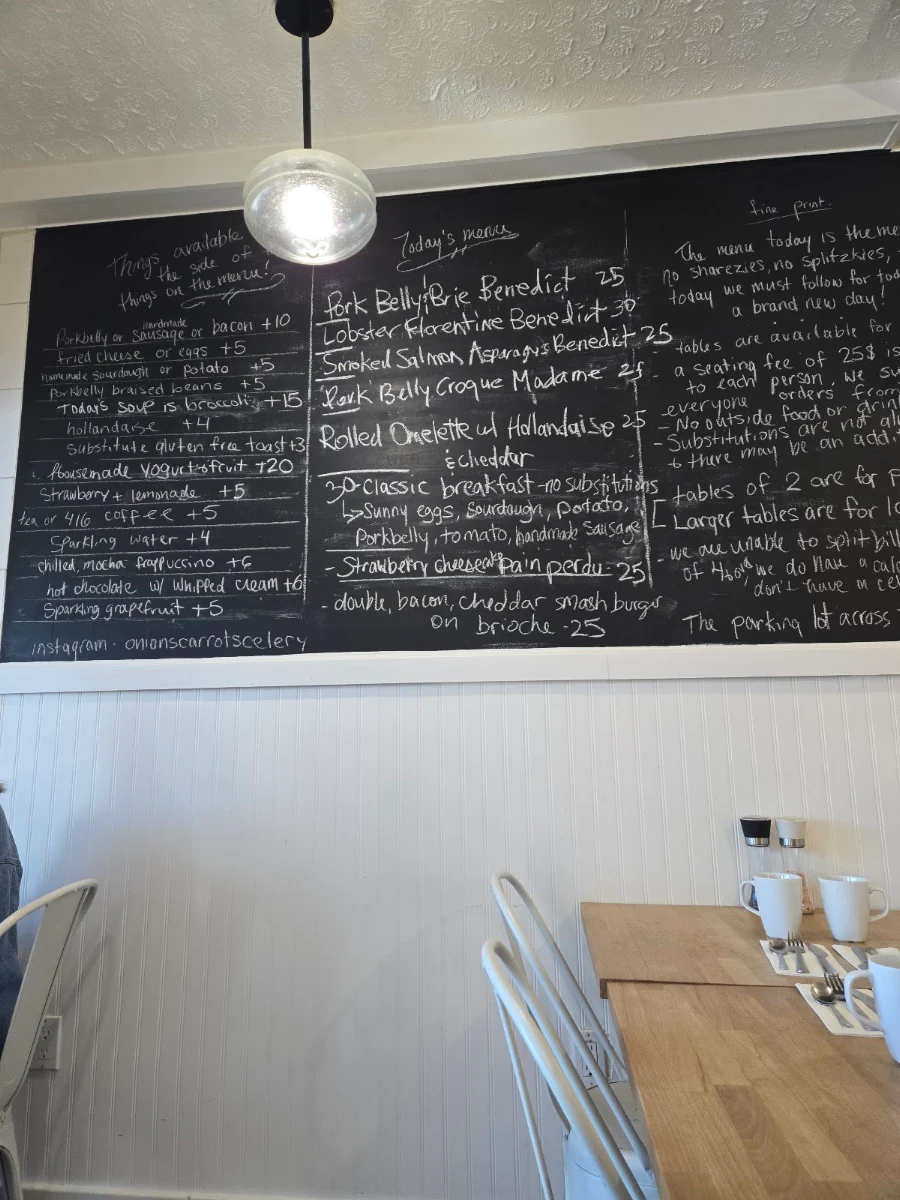 Things available
the side of
things on the menu!
handmade
Porkbelly or sausage or bacon +10
fried cheese or eggs +5
homemade sourdough or potato +5
Porkbelly braised beans +5
Today's soup is broccoli +15
hollandaise +4
Substitute gluten free toast +3
housemade yogurt + fruit +20
Strawberry + lemonade +5
tea or 416 coffee +5
Sparkling water +4
chilled, mocha frappuccino +6
hot chocolate w/ whipped cream +6
Sparkling grapefruit +5
instagram - onionscarrotscelery
Today's menu
Pork Belly & Brie Benedict 25
Lobster Florentine Benedict 30
Smoked Salmon Asparagus Benedict 25
Pork Belly Croque Madame 25
Rolled Omelette w/ Hollandaise 25
& cheddar
30-classic breakfast-no substitutions
↳ Sunny eggs, sourdough, potato,
Porkbelly, tomato, handmade sausage
- Strawberry cheesecake Pain perdu - 25
- double, bacon, cheddar smash burger
on brioche - 25
fine print.
The menu today is the me
no sharezies, no splitzkies,
today we must follow for tod
a brand new day!
tables are available for
a seating fee of 25$ is
to each person. we su
everyone orders from
- No outside food or drin
- Substitutions are not al
& there may be an addi
tables of 2 are for p
Larger tables are for la
- we are unable to split bill
of we do have a calc
don't have a cel
The parking lot across